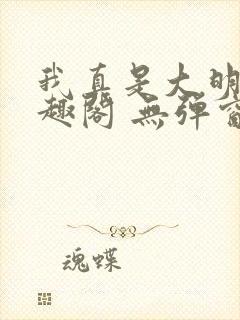 我真是大明
趣閣 無彈窗
魂蝶